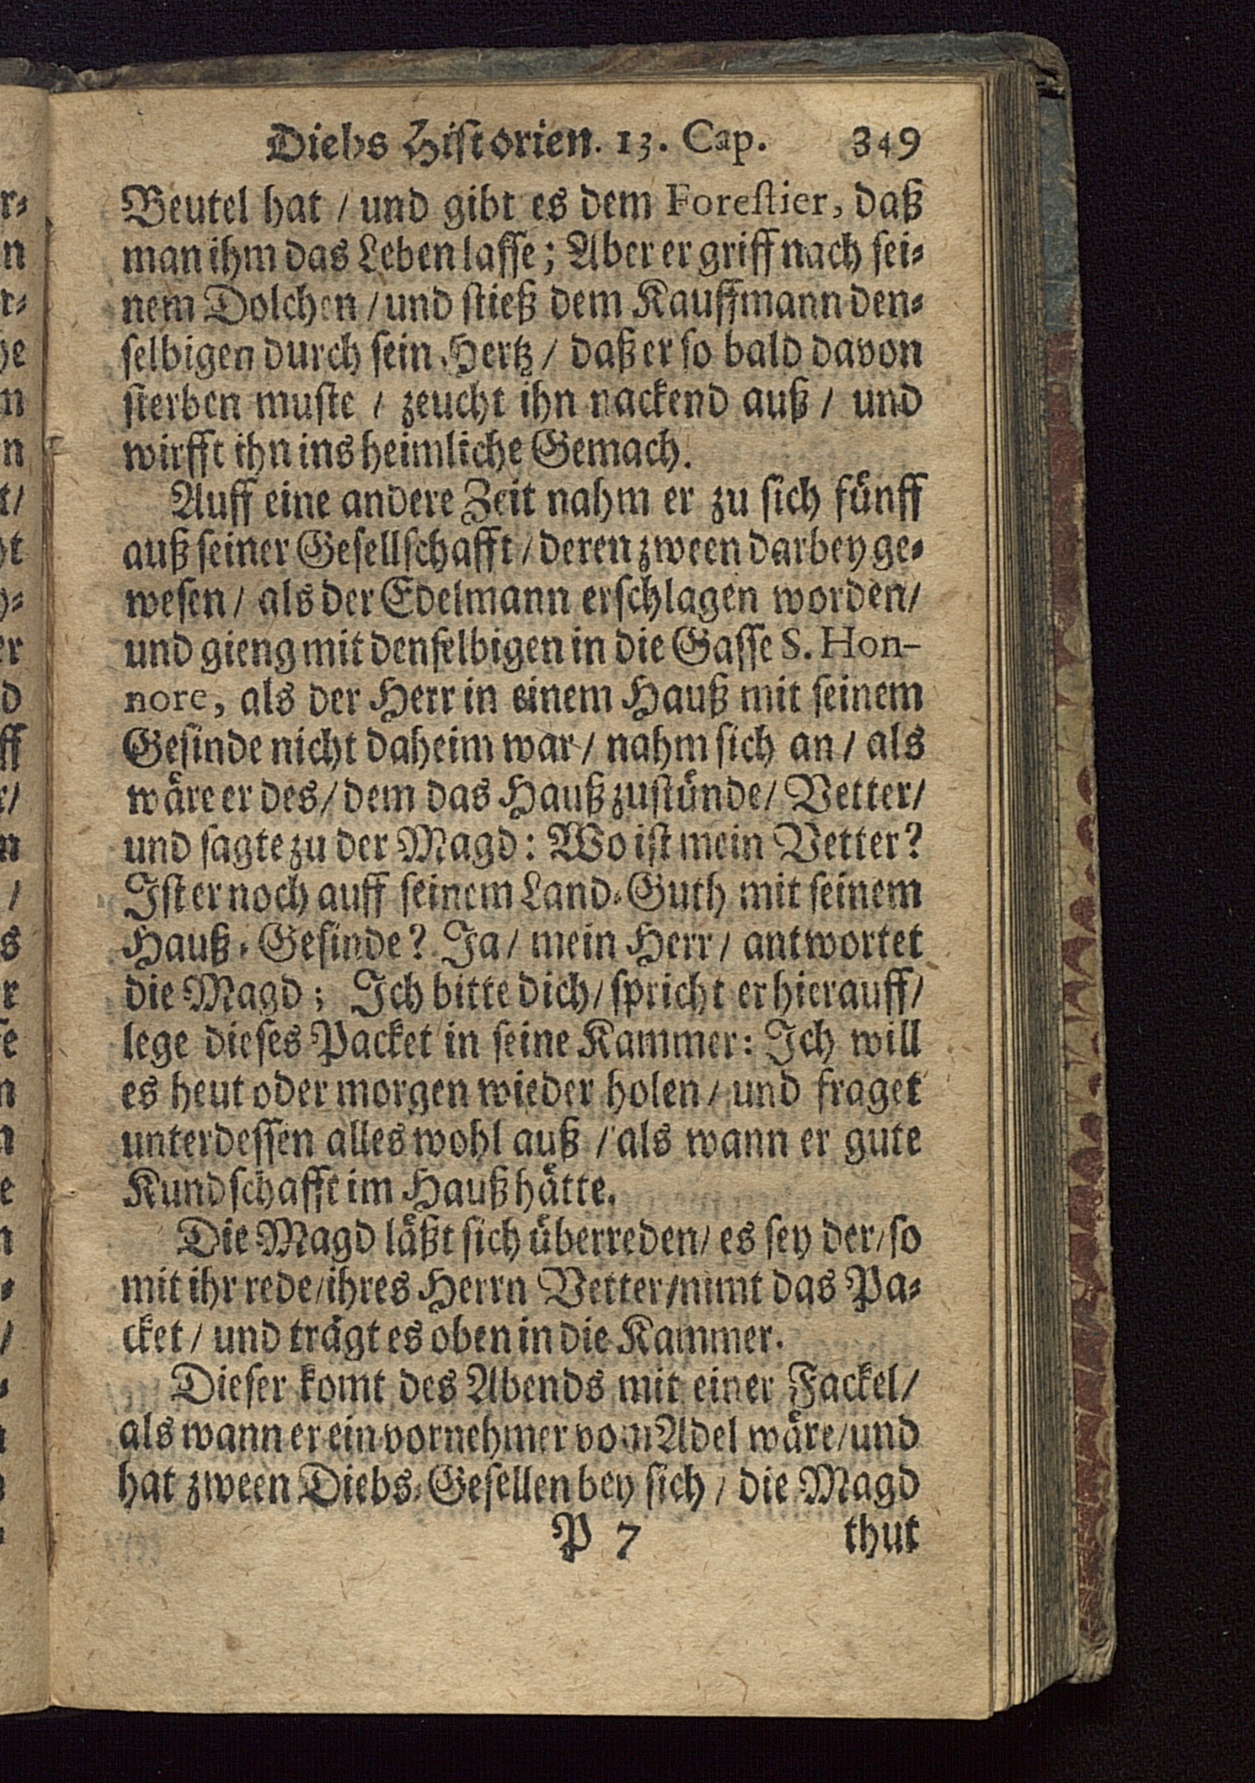 Diebs Historien. 13. Cap. 349
Beutel hat / und gibt es dem Forestier, daß
man ihm das Leben lasse; Aber er griff nach sei-
nem Dolchen / und stieß dem Kauffmann den-
selbigen durch sein Hertz / daß er so bald davon
sterben muste / zeucht ihn nackend auß / und
wirfft ihn ins heimliche Gemach.
Auff eine andere Zeit nahm er zu sich fünff
auß seiner Gesellschafft / deren zween darbey ge-
wesen / als der Edelmann erschlagen worden /
und gieng mit denselbigen in die Gasse S. Hon-
nore, als der Herr in einem Hauß mit seinem
Gesinde nicht daheim war / nahm sich an / als
wäre er des / dem das Hauß zustünde / Vetter /
und sagte zu der Magd: Wo ist mein Vetter?
Ist er noch auff seinem Land-Guth mit seinem
Hauß-Gesinde? Ja / mein Herr / antwortet
die Magd; Ich bitte dich / spricht er hierauff /
lege dieses Packet in seine Kammer: Ich will
es heut oder morgen wieder holen / und fraget
unterdessen alles wohl auß / als wann er gute
Kundschafft im Hauß hätte.
Die Magd läßt sich überreden / es sey der / so
mit ihr rede / ihres Herrn Vetter / nimt das Pa-
cket / und trägt es oben in die Kammer.
Dieser komt des Abends mit einer Fackel /
als wann er ein vornehmer vom Adel wäre / und
hat zween Diebs-Gesellen bey sich / die Magd
P 7 thut